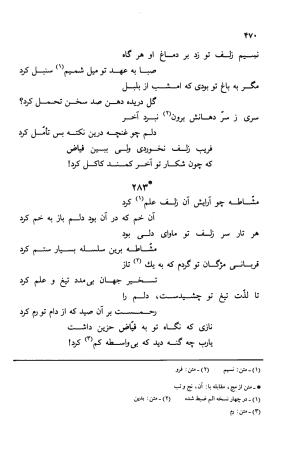 ۴۷۰
نسیم زلف تو زد بر دماغ او هر گاه
صبا به عهد تو میل شمیم(۱) سنبل کرد
مگر به باغ تو بودی که امشب از بلبل
گل دریده دهن صد سخن تحمل کرد؟
سری ز سرّ دهانش برون(۲) نبرد آخر
دلم چو غنچه درین نکته بس تأمّل کرد
فریب زلف نخوردی ولی ببین فیاض
که چون شکار تو آخر کمند کاکل کرد!
*۲۸۳
مشّاطه چو آرایش آن زلف علم(۱) کرد
آن خم که در آن بود دلم باز به خم کرد
هر تار سر زلف تو ماوای دلی بود
مشّاطه برین سلسله بسیار ستم کرد
قربانی مژگان تو گردم که به یك(۲) تاز
تسخیر جهان بی‌مدد تیغ و علم کرد
تا لذّت تیغ تو چشیدست، دلم را
رحمست بر آن صید که از دام تو رم کرد
نازی که نگاه تو به فیّاض حزین داشت
یارب چه گنه دید که بی‌واسطه کم(۳) کرد!
(۱) ـ متن: نسیم (۲) ـ متن: فرو
* ـ متن از مج، مقابله با: آن، نج و تب
(۱) ـ در چهار نسخه الم ضبط شده (۲) ـ متن: بدین
(۳) ـ متن: رم